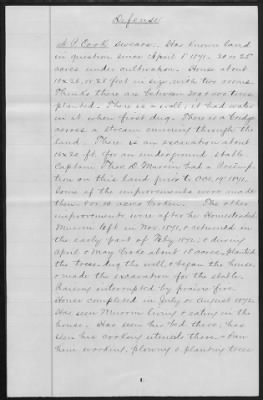 Defense
W. P. Cook swears: Has known land
in question since April 8" 1871. 20 or 25
acres under cultivation. House about
18 x 26, or 28 feet in size, with two rooms.
Thinks there are between 300 & 400 trees
planted. There is a well; it had water
in it when first dug. There is a bridge
across a stream running through the
land. There is an excavation about
16 x 20 ft. for an underground stable
Captain Thos. D. Munson had a
tion on this land prior to Oct. 19" 1871.
Some of the improvements were made
then 8 or 10 acres broken. The other
improvements were after he Homesteaded.
left in Nov. 1871, & returned in
the early part of Feby 1872, & during
April & May broke about 15 acres, planted
the trees, dug the well, & began the house
& made the excavation for the stable.
Having interrupted by prairie fire.
House completed in July or August 1872.
Has seen living & eating in the
house. Has seen his bed there; has
seen his cooking utensils there & saw
him working, plowing & planting trees
1.